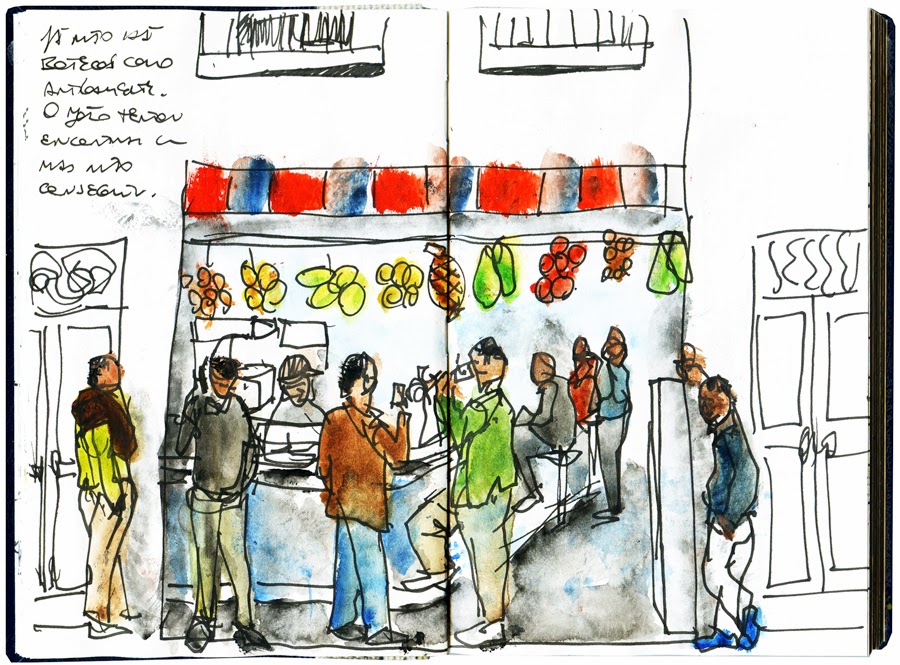 JÁ NÃO HÁ
BOTECOS COMO
ANTIGAMENTE.
O JOÃO TENTOU
ENCONTRAR
MAS NÃO
CONSEGUIU.